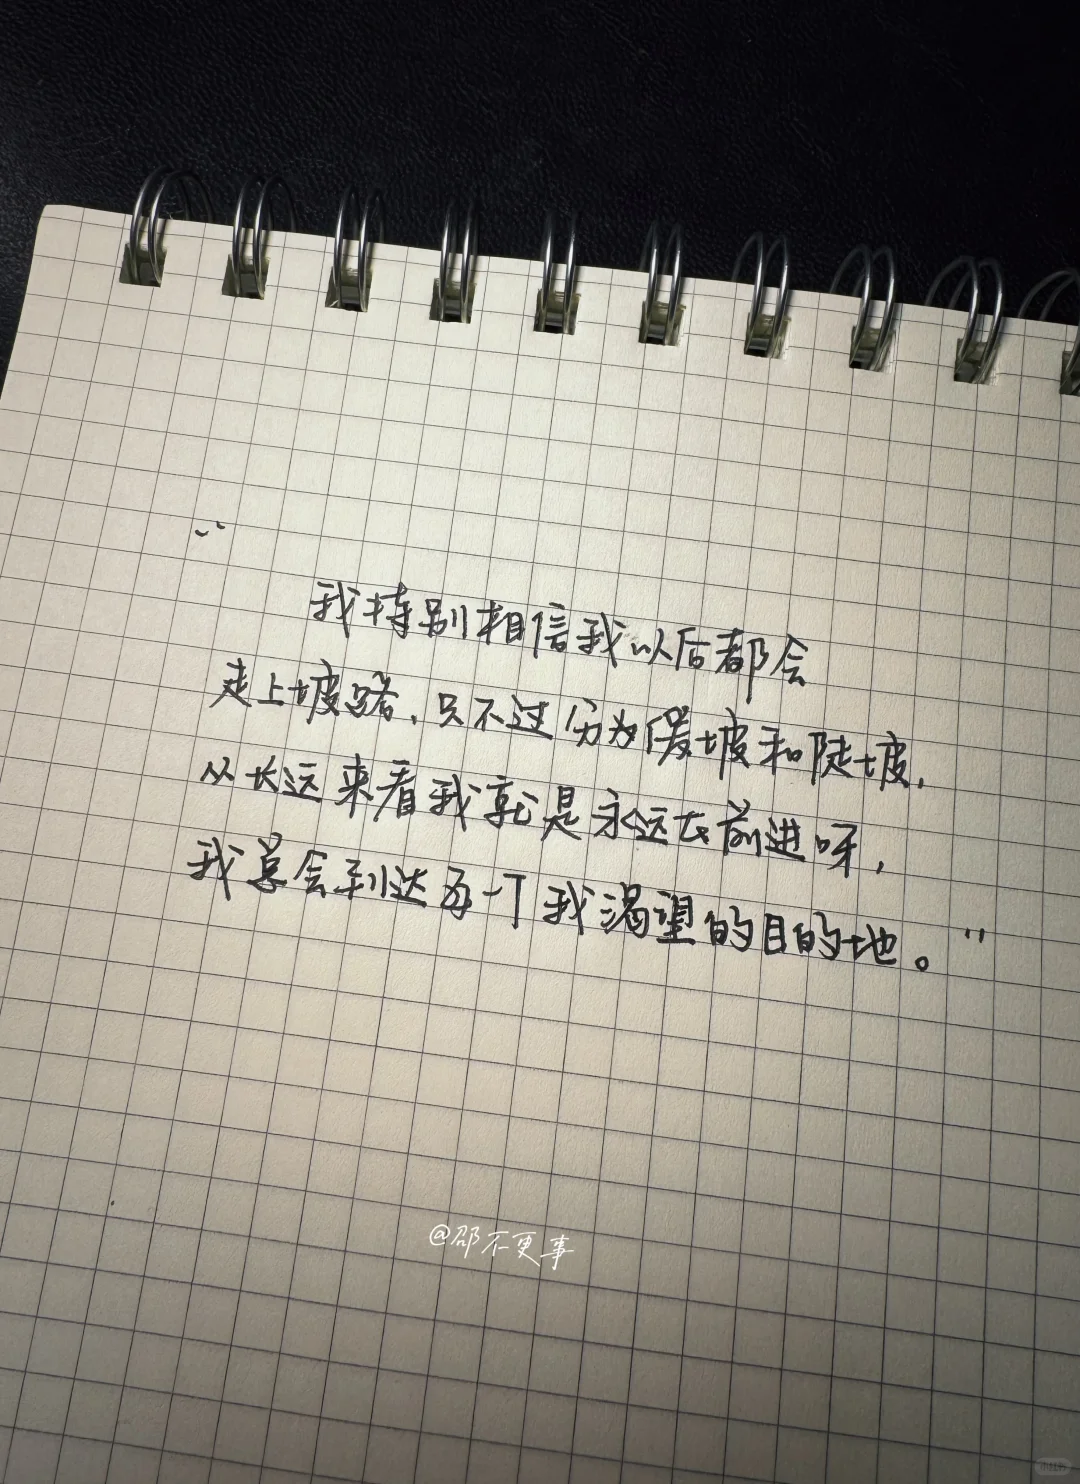 “
我特别相信我以后都会
走上坡路，只不过分为缓坡和陡坡，
从长远来看我就是永远在前进呀，
我总会到达每一个我渴望的目的地。”
@邵不更事
小红书